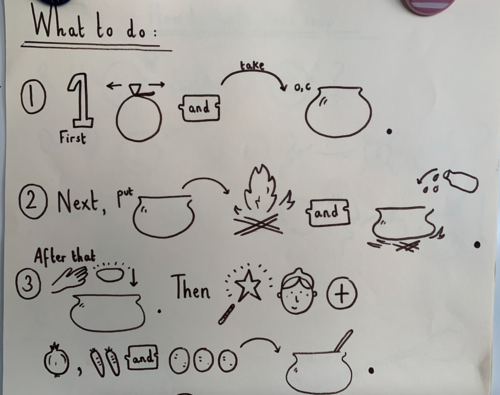 What to do :
① 1 and take o,c .
First
② Next, put and .
After that
③ . Then +
, and .